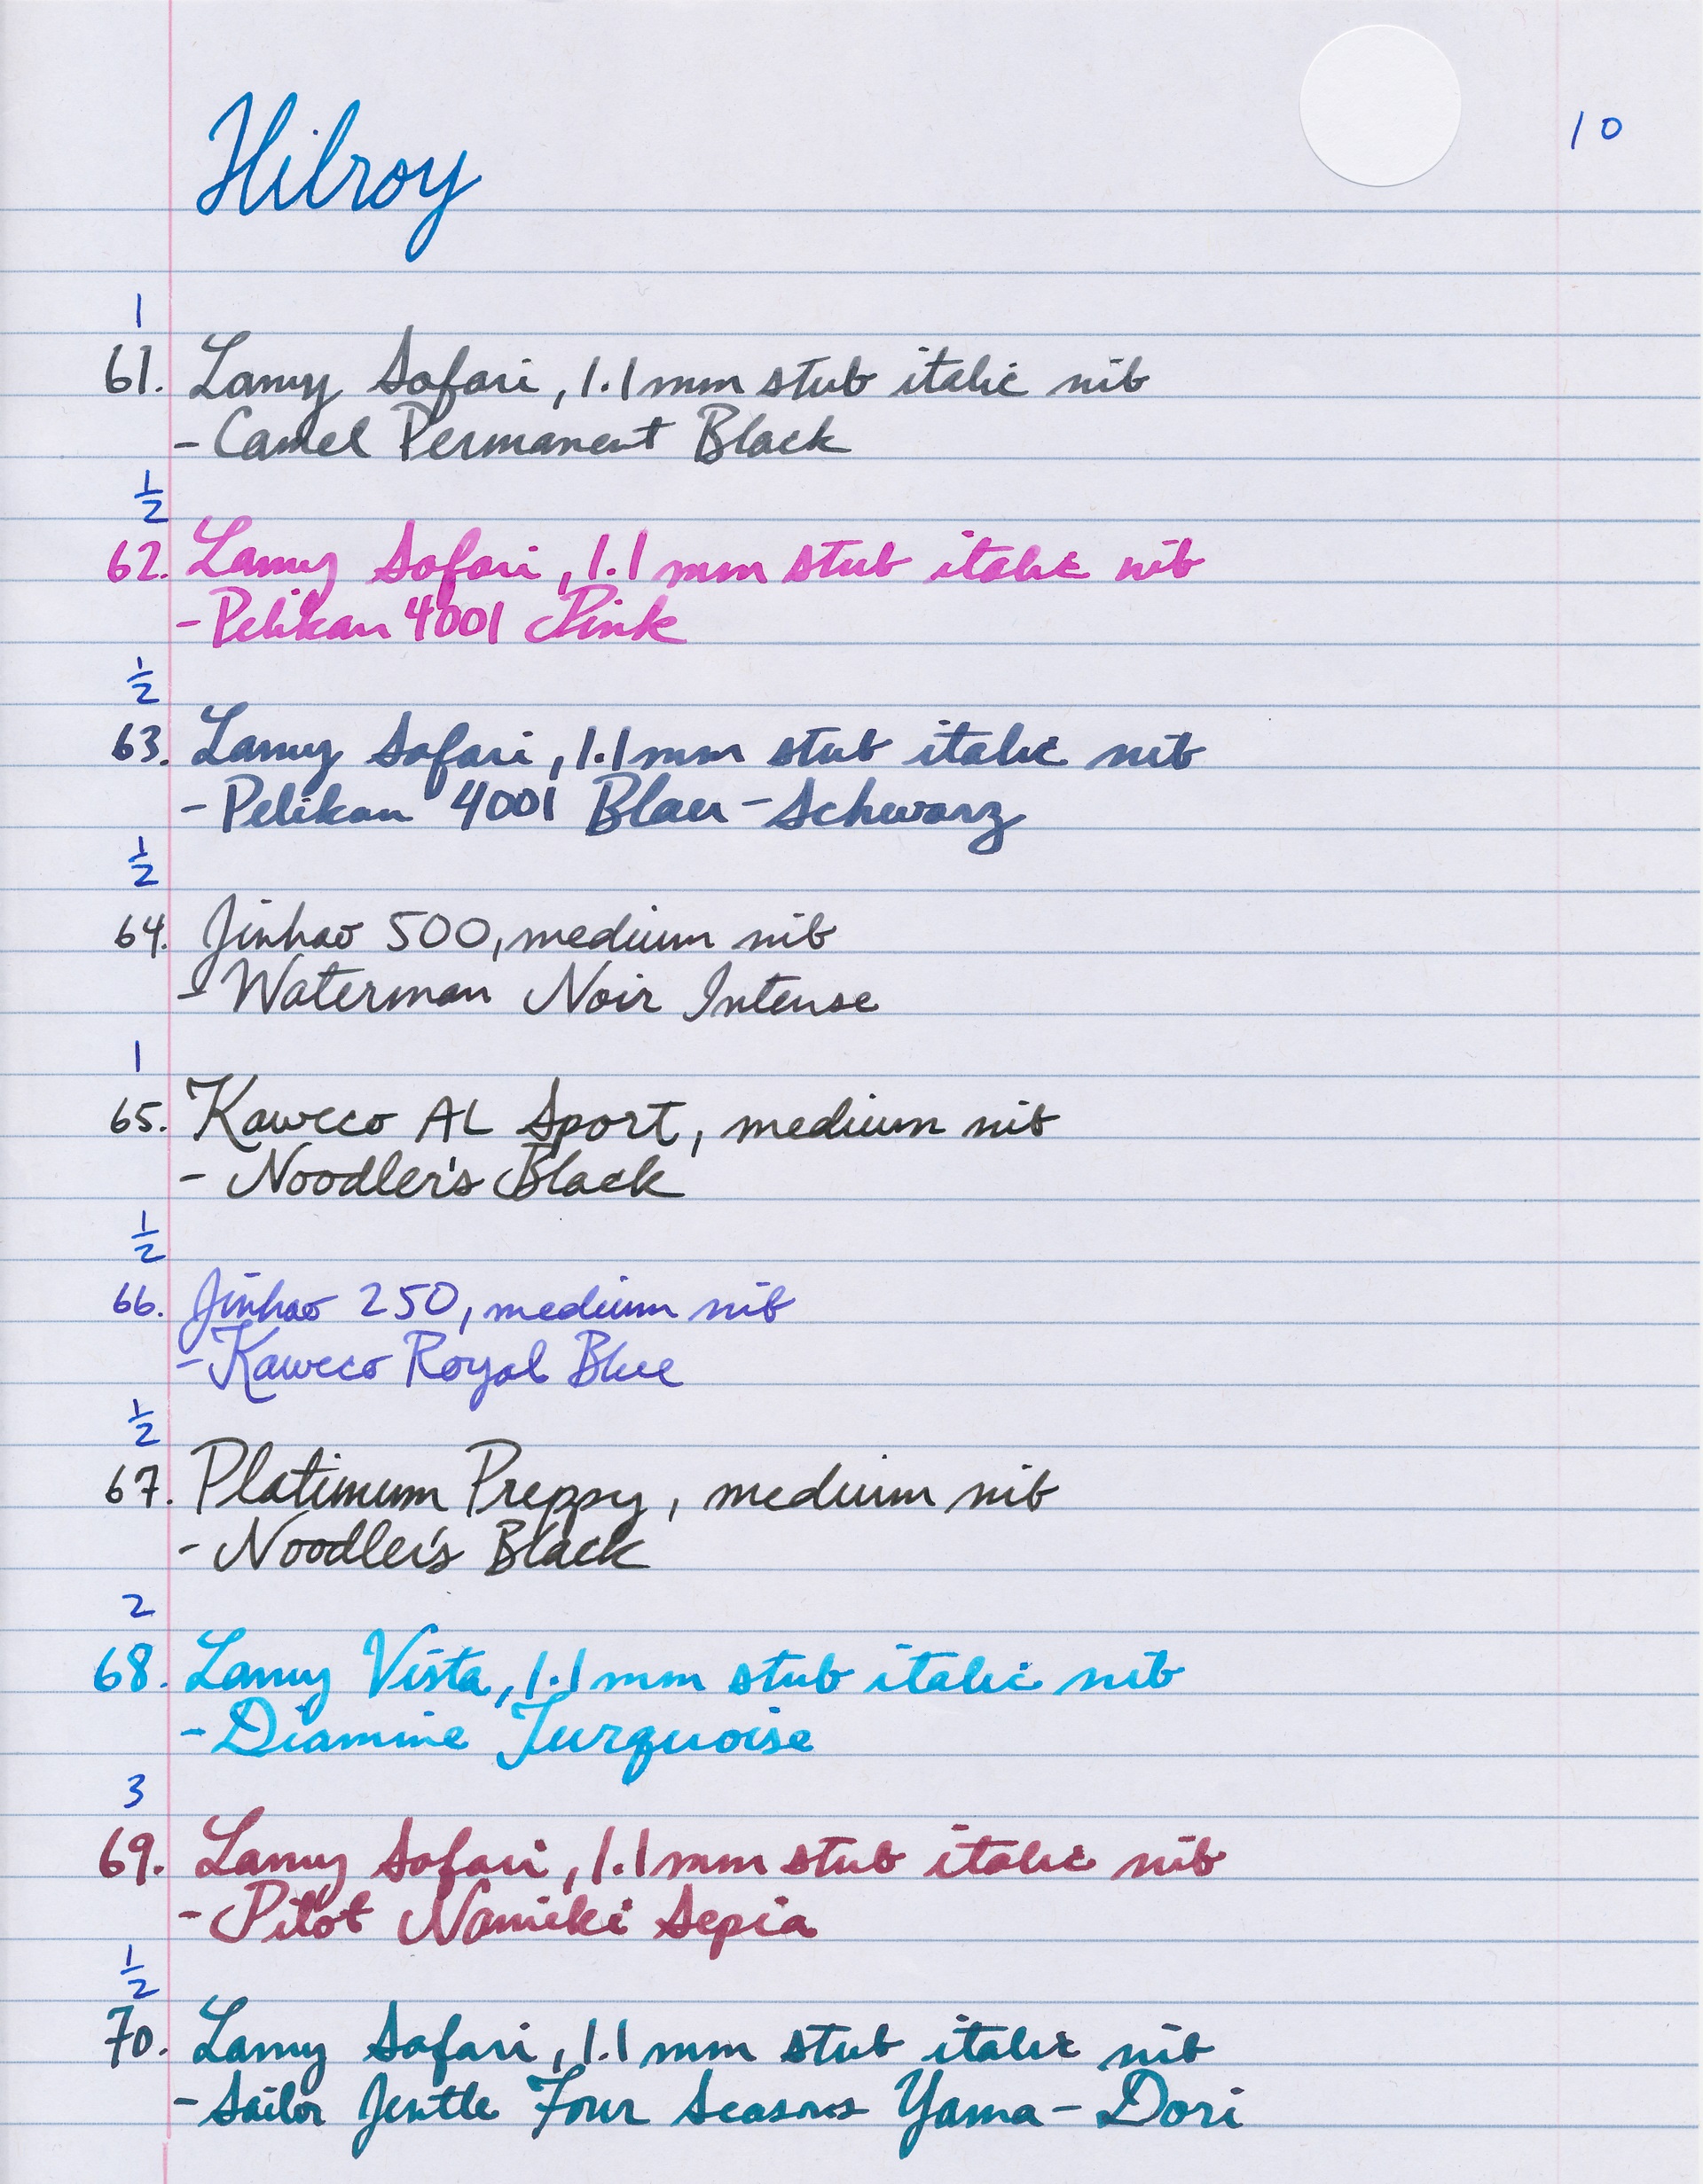 Hilroy
10
1
61. Lamy Safari, 1.1mm stub italic nib
- Camel Permanent Black
1/2
62. Lamy Safari, 1.1mm stub italic nib
- Pelikan 4001 Pink
1/2
63. Lamy Safari, 1.1mm stub italic nib
- Pelikan 4001 Blau-Schwarz
1/2
64. Jinhao 500, medium nib
- Waterman Noir Intense
1
65. Kaweco AL Sport, medium nib
- Noodler's Black
1/2
66. Jinhao 250, medium nib
- Kaweco Royal Blue
1/2
67. Platinum Preppy, medium nib
- Noodler's Black
2
68. Lamy Vista, 1.1mm stub italic nib
- Diamine Turquoise
3
69. Lamy Safari, 1.1mm stub italic nib
- Pilot Namiki Sepia
1/2
70. Lamy Safari, 1.1mm stub italic nib
- Sailor Jentle Four Seasons Yama-Dori